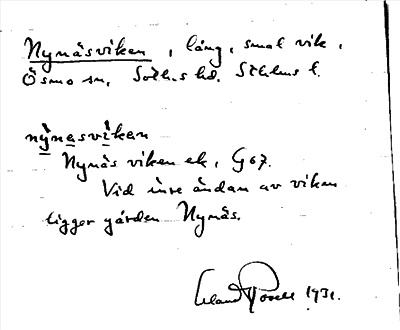 Nynäsviken, lång, smal vik,
Ösmo sn, Soth.s hd. Sthlms l.
nýnesvìken
Nynäs viken ek, G 67.
Vid inre ändan av viken
ligger gården Nynäs.
1931.